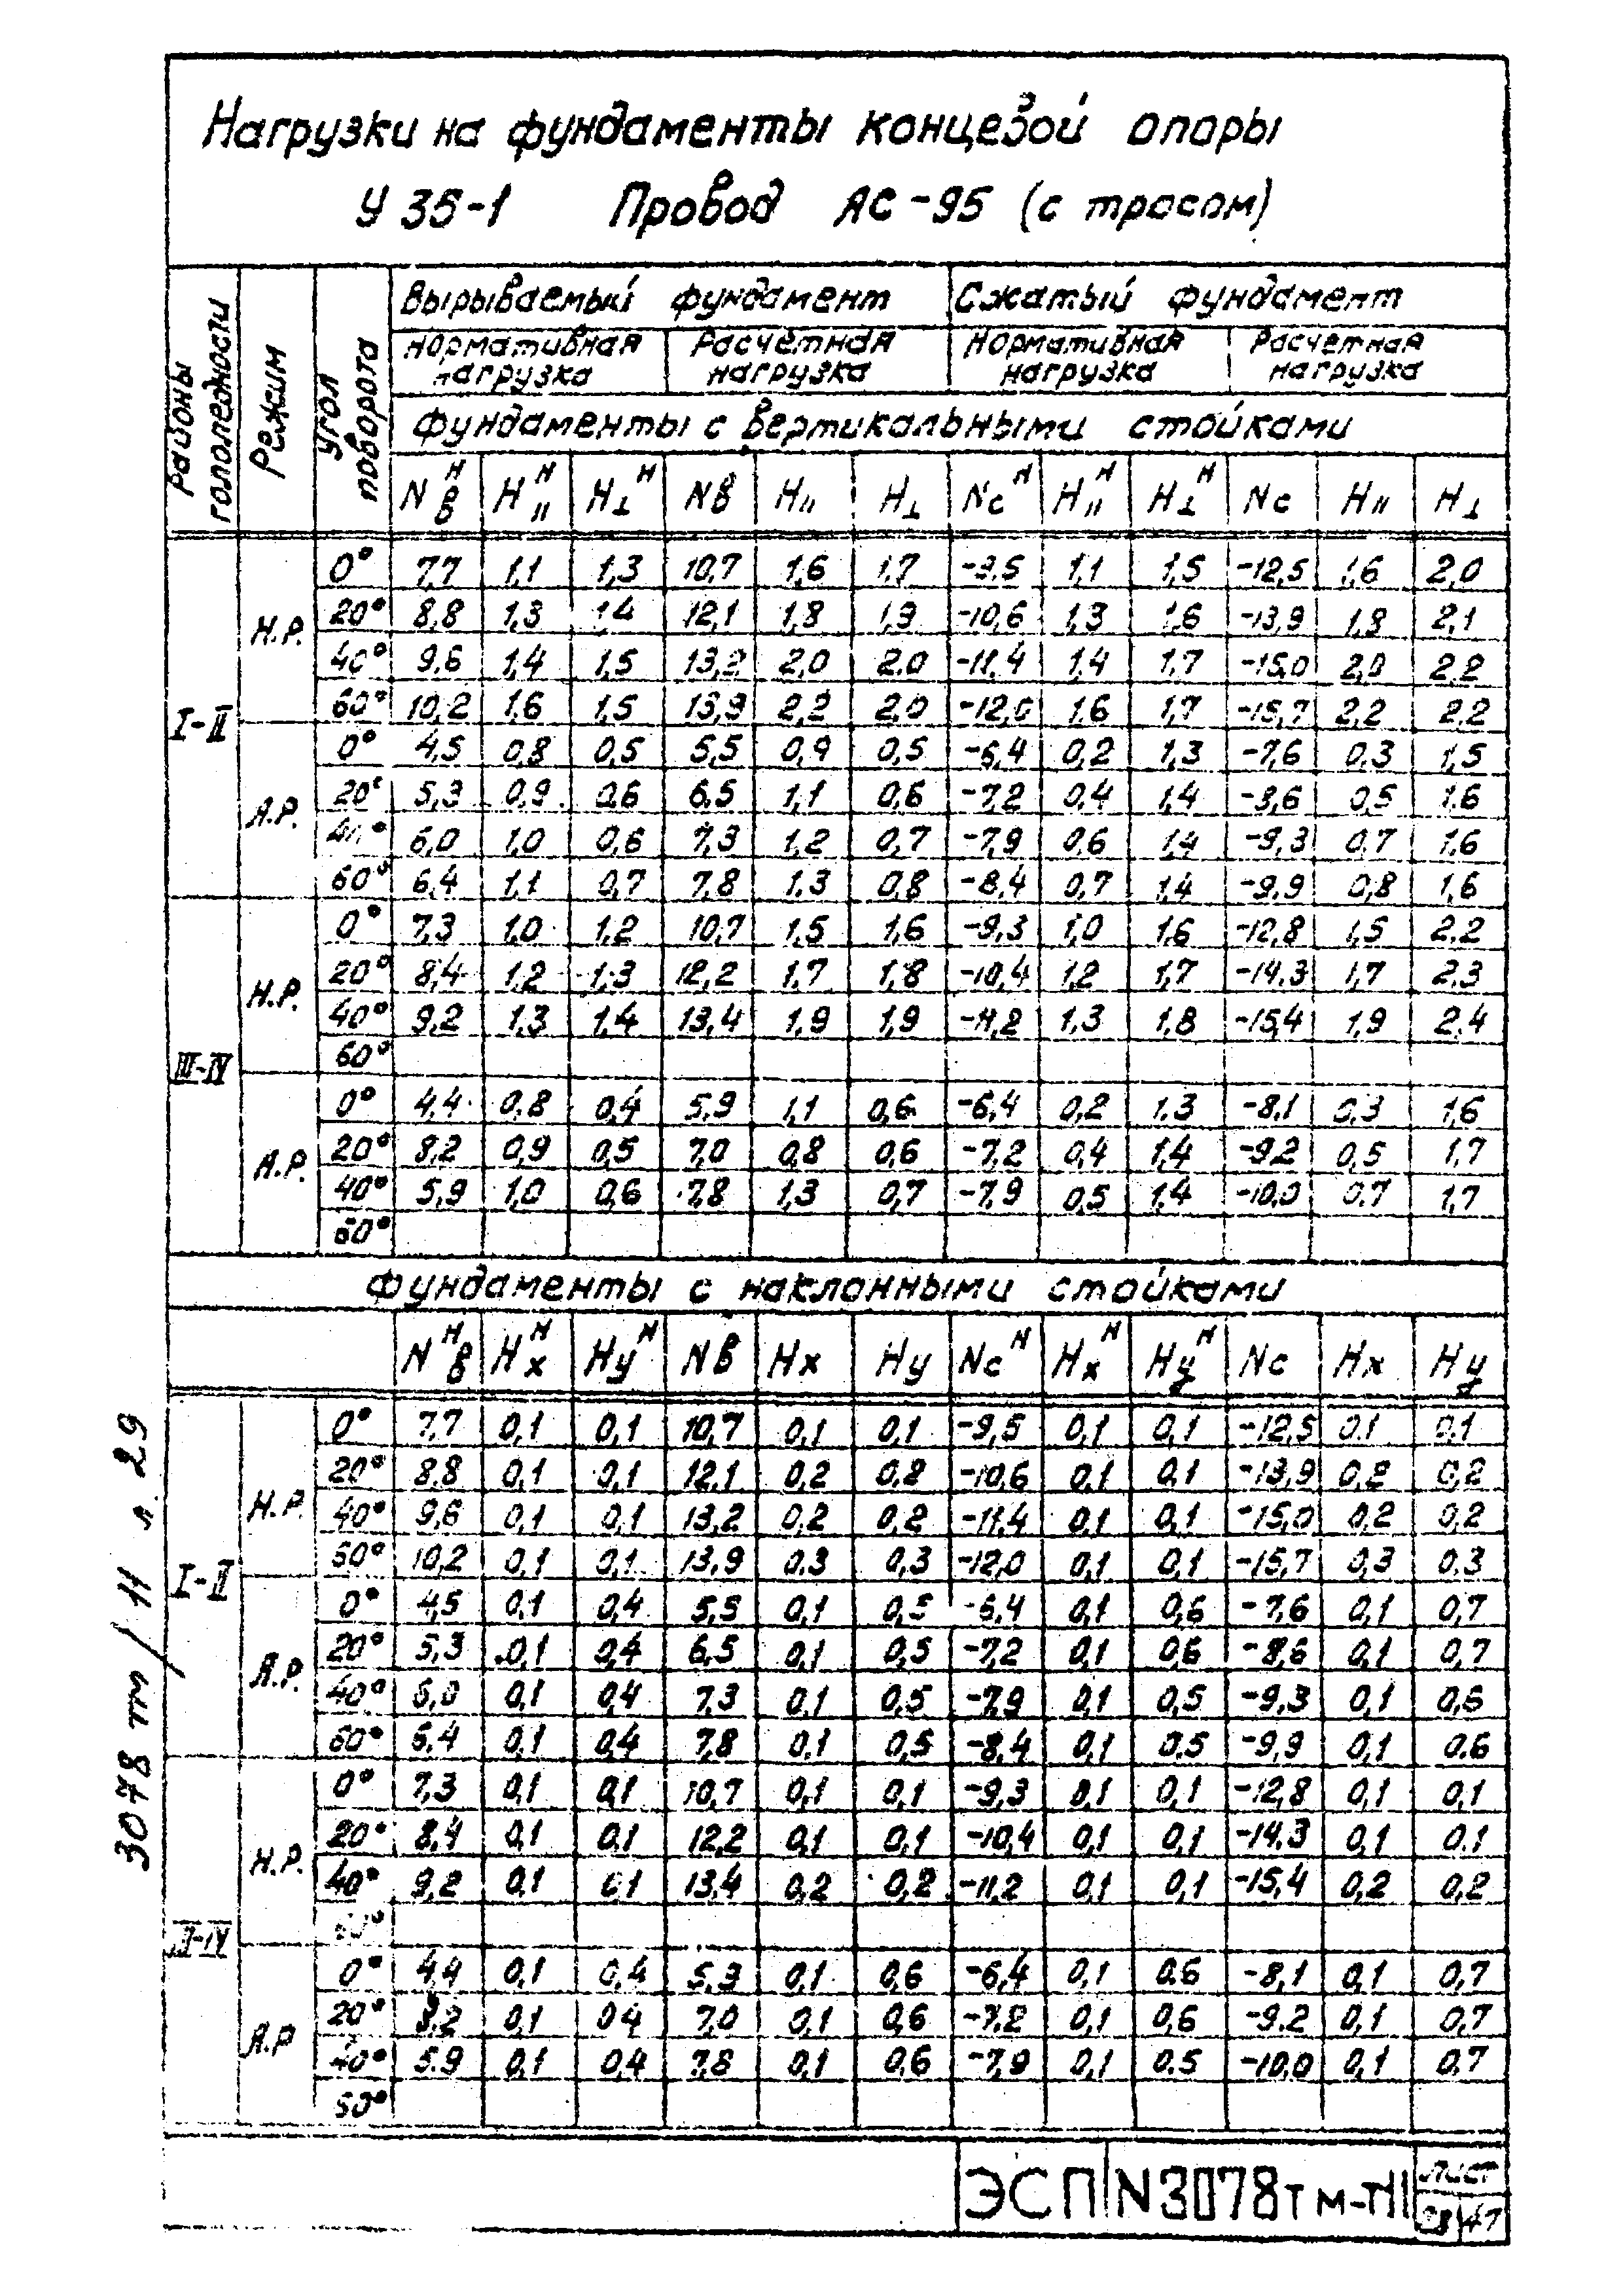 Нагрузки на фундаменты концевой опоры
У 35-1 Провод АС-95 (с тросом)
Районы гололедности Режим Угол поворота Вырываемый фундамент Сжатый фундамент
Нормативная нагрузка Расчётная нагрузка Нормативная нагрузка Расчетная нагрузка
Фундаменты с вертикальными стойками
Nв^н H||^н H⊥^н Nв H|| H⊥ Nс^н H||^н H⊥^н Nс H|| H⊥
I-II Н.Р. 0° 7,7 1,1 1,3 10,7 1,6 1,7 -9,5 1,1 1,5 -12,5 1,6 2,0
20° 8,8 1,3 1,4 12,1 1,8 1,9 -10,6 1,3 1,6 -13,9 1,8 2,1
40° 9,6 1,4 1,5 13,2 2,0 2,0 -11,4 1,4 1,7 -15,0 2,0 2,2
60° 10,2 1,6 1,5 13,9 2,2 2,0 -12,0 1,6 1,7 -15,7 2,2 2,2
А.Р. 0° 4,5 0,8 0,5 5,5 0,9 0,5 -6,4 0,2 1,3 -7,6 0,3 1,5
20° 5,3 0,9 0,6 6,5 1,1 0,6 -7,2 0,4 1,4 -8,6 0,5 1,6
40° 6,0 1,0 0,6 7,3 1,2 0,7 -7,9 0,6 1,4 -9,3 0,7 1,6
60° 6,4 1,1 0,7 7,8 1,3 0,8 -8,4 0,7 1,4 -9,9 0,8 1,6
III-IV Н.Р. 0° 7,3 1,0 1,2 10,7 1,5 1,6 -9,3 1,0 1,6 -12,8 1,5 2,2
20° 8,4 1,2 1,3 12,2 1,7 1,8 -10,4 1,2 1,7 -14,3 1,7 2,3
40° 9,2 1,3 1,4 13,4 1,9 1,9 -11,2 1,3 1,8 -15,4 1,9 2,4
60°
А.Р. 0° 4,4 0,8 0,4 5,9 1,1 0,6 -6,4 0,2 1,3 -8,1 0,3 1,6
20° 8,2 0,9 0,5 7,0 0,8 0,6 -7,2 0,4 1,4 -9,2 0,5 1,7
40° 5,9 1,0 0,6 7,8 1,3 0,7 -7,9 0,5 1,4 -10,0 0,7 1,7
60°
Фундаменты с наклонными стойками
Nв^н Hх^н Hу^н Nв Hх Hу Nс^н Hх^н Hу^н Nс Hх Hу
I-II Н.Р. 0° 7,7 0,1 0,1 10,7 0,1 0,1 -9,5 0,1 0,1 -12,5 0,1 0,1
20° 8,8 0,1 0,1 12,1 0,2 0,2 -10,6 0,1 0,1 -13,9 0,2 0,2
40° 9,6 0,1 0,1 13,2 0,2 0,2 -11,4 0,1 0,1 -15,0 0,2 0,2
60° 10,2 0,1 0,1 13,9 0,3 0,3 -12,0 0,1 0,1 -15,7 0,3 0,3
А.Р. 0° 4,5 0,1 0,4 5,5 0,1 0,5 -6,4 0,1 0,6 -7,6 0,1 0,7
20° 5,3 0,1 0,4 6,5 0,1 0,5 -7,2 0,1 0,6 -8,6 0,1 0,7
40° 6,0 0,1 0,4 7,3 0,1 0,5 -7,9 0,1 0,5 -9,3 0,1 0,6
60° 6,4 0,1 0,4 7,8 0,1 0,5 -8,4 0,1 0,5 -9,9 0,1 0,6
III-IV Н.Р. 0° 7,3 0,1 0,1 10,7 0,1 0,1 -9,3 0,1 0,1 -12,8 0,1 0,1
20° 8,4 0,1 0,1 12,2 0,1 0,1 -10,4 0,1 0,1 -14,3 0,1 0,1
40° 9,2 0,1 0,1 13,4 0,2 0,2 -11,2 0,1 0,1 -15,4 0,2 0,2
60°
А.Р 0° 4,4 0,1 0,4 5,9 0,1 0,6 -6,4 0,1 0,6 -8,1 0,1 0,7
20° 8,2 0,1 0,4 7,0 0,1 0,6 -7,2 0,1 0,6 -9,2 0,1 0,7
40° 5,9 0,1 0,4 7,8 0,1 0,6 -7,9 0,1 0,5 -10,0 0,1 0,7
60°
3078 тм / II л. 29
ЭСП N 3078тм-ТII Лист
47